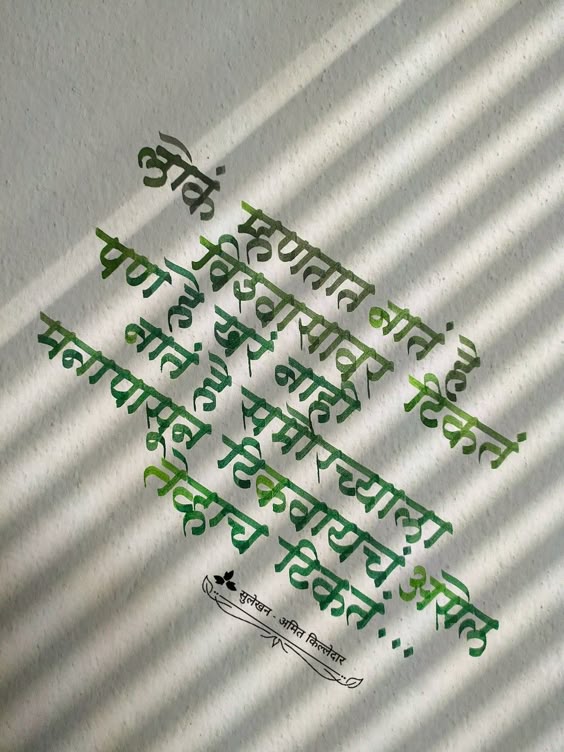 लोकं म्हणतात नातं हे
विश्वासावर टिकतं
पण हे खरं नाही
नातं हे समोरच्याला
मनापासून टिकवायचं असेल
तेव्हाच टिकतं...
सुलेखन - अमित किल्लेदार